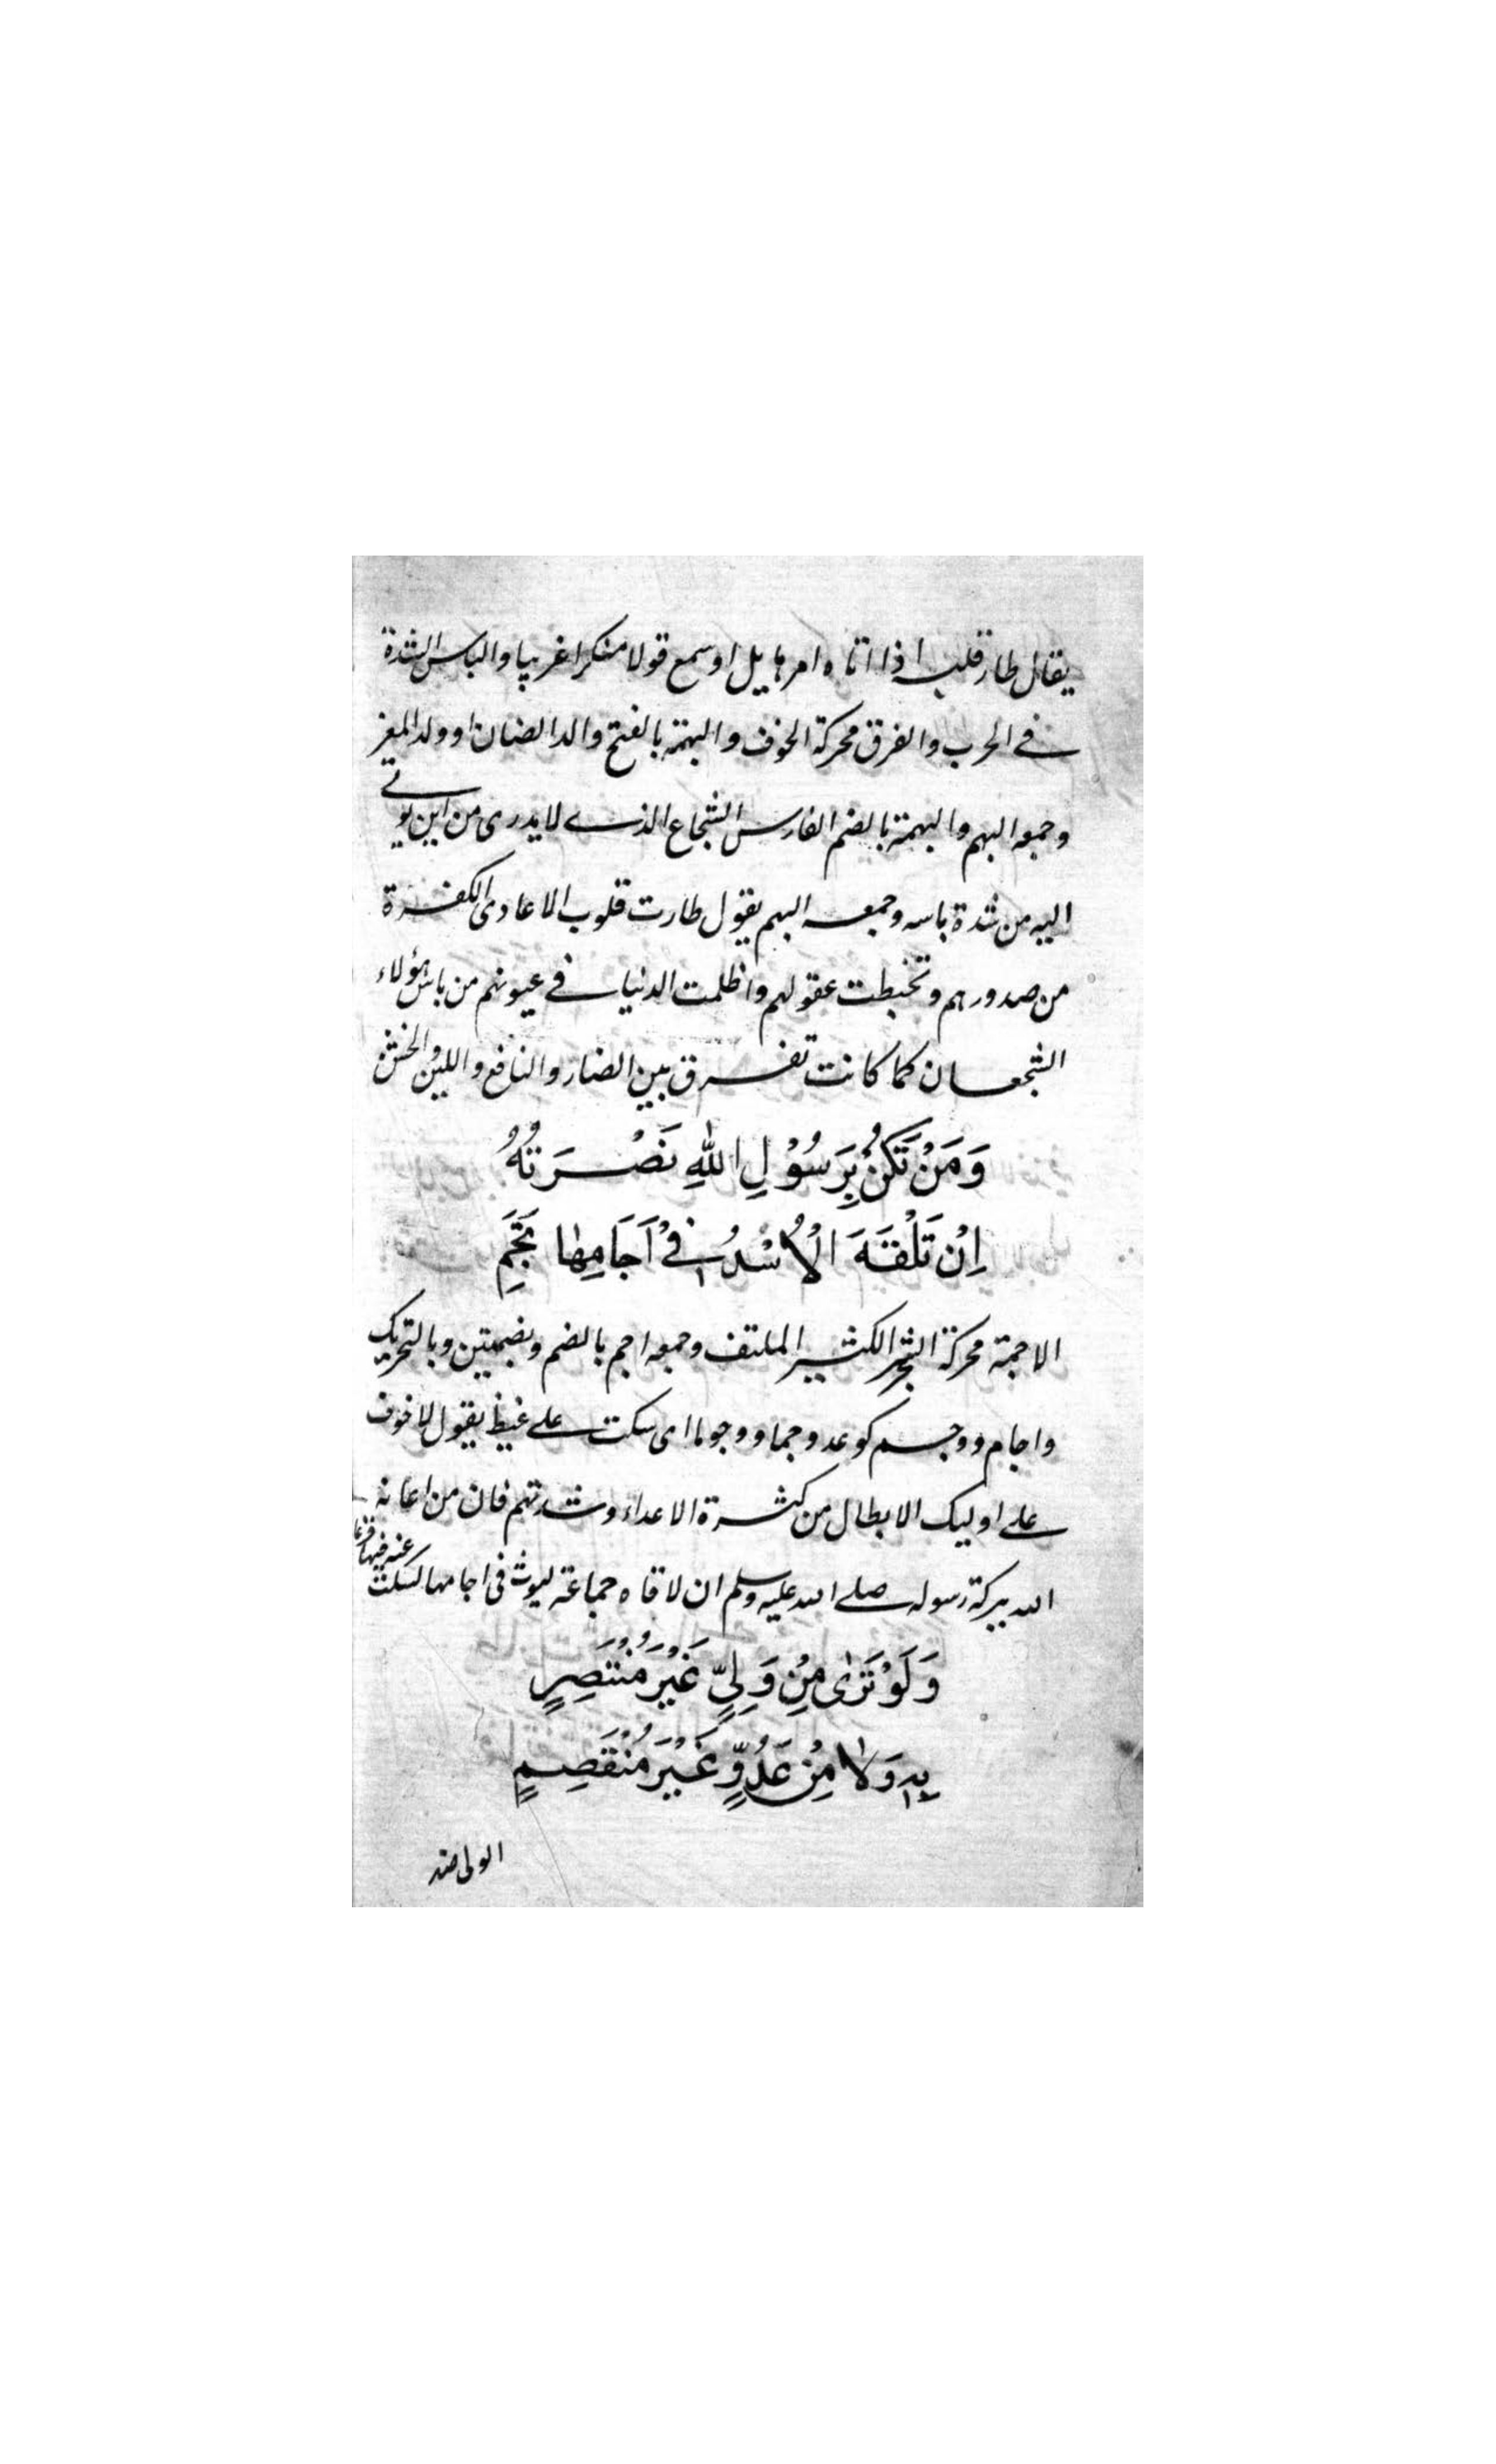 يقال طار قلبه اذا اتاه امر هايل او سمع قولا منكرا غريبا والباس الشدة
في الحرب والفرق محركة الخوف والبهمة بالفتح والد الضان او ولد المعز
وجمعه البهم والبهمة بالضم الفارس الشجاع الذي لا يدرى من اين يوتى
اليه من شدة باسه وجمعه البهم يقول طارت قلوب الاعادي الكفرة
من صدورهم وتخبطت عقولهم واظلمت الدنيا في عيونهم من باس هؤلاء
الشجعان كما كانت تفرق بين الضار والنافع واللين والخشن
وَمَنْ تَكُنْ بِرَسُوْلِ اللّٰهِ نَصْرَتُهُ
اِنْ تَلْقَهَ الْاُسْدُ فِيْ اَجَامِهَا تَجِمِ
الاجمة محركة الشجر الكثير الملتف وجمعه اجم بالضم وبضمتين وبالتحريك
واجام ووجم كوعد وجما ووجوما اى سكت على غيظ يقول لا خوف
على اوليك الابطال من كثرة الاعداء وشدتهم فان من اعانه
الله ببركة رسوله صلى الله عليه وسلم ان لاقاه جماعة ليوث في اجامها لسكت
عنه فيها فزعا
وَلَوْ تَرٰى مِنْ وَلِيٍّ غَيْرَ مُنْتَصِرٍ
بِهٖ وَلَا مِنْ عَدُوٍّ غَيْرَ مُنْقَصِمٍ
الولى ضد